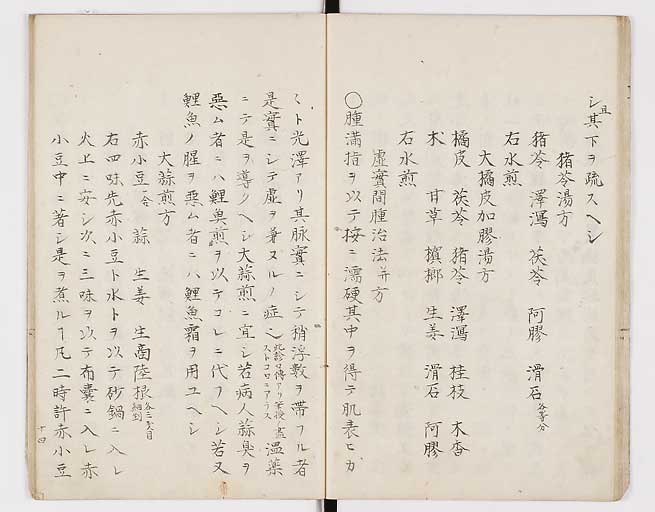 シ且其下ヲ疏スヘシ
猪苓湯方
猪苓 澤瀉 茯苓 阿膠 滑石各等分
右水煎
大橘皮加膠湯方
橘皮 茯苓 猪苓 澤瀉 桂枝 木香
朮 甘草 檳榔 生姜 滑石 阿膠
右水煎
虚實間腫治法并方
〇腫滿指ヲ以テ按ニ濡硬其中ヲ得テ肌表ヒカ
〻ト光澤アリ其脉實ニシテ稍浮數ヲ帶フル者
是實ニシテ虚ヲ兼ヌルノ症也此診口傳アリ筆授ストコロニアラス盖温藥
ニテ是ヲ導クヘシ大蒜煎ニ宜シ若病人蒜臭ヲ
惡ム者ニハ鯉臭煎ヲ以テコレニ代フヘシ若又
鯉魚ノ腥ヲ惡ム者ニハ鯉魚霜ヲ用ユヘシ
大蒜煎方
赤小豆一合 蒜 生姜 生商陸根各三戔目細剉
右四味先赤小豆ト水トヲ以テ砂鍋ニ入レ
火上ニ安シ次ニ三味ヲ以テ布囊ニ入レ赤
小豆中ニ著シ是ヲ煮ルヿ凡二時許赤小豆
十四